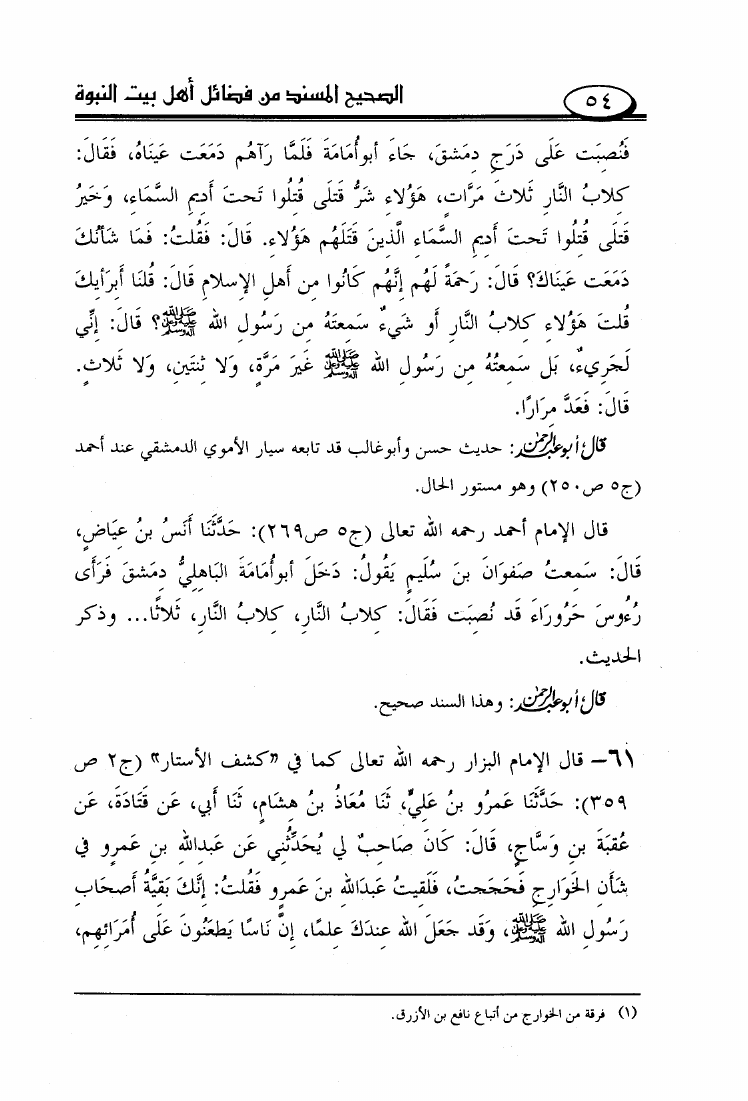 ٥٤
الصحيح المسند من فضائل أهل بيت النبوة
فَنُصِبَت عَلَى دَرَجِ دِمَشقَ، جَاءَ أبوأُمَامَةَ فَلَمَّا رَآهُم دَمَعَت عَينَاهُ، فَقَالَ:
كِلابُ النَّارِ ثَلاثَ مَرَّاتٍ، هَؤُلاءِ شَرُّ قَتلَى قُتِلُوا تَحتَ أَدِيمِ السَّمَاءِ، وَخَيرُ
قَتلَى قُتِلُوا تَحتَ أَدِيمِ السَّمَاءِ الَّذِينَ قَتَلَهُم هَؤُلاءِ. قَالَ: فَقُلتُ: فَمَا شَأنُكَ
دَمَعَت عَينَاكَ؟ قَالَ: رَحمَةً لَهُم إِنَّهُم كَانُوا مِن أَهلِ الإِسلامِ قَالَ: قُلنَا أَبِرَأيِكَ
قُلتَ هَؤُلاءِ كِلابُ النَّارِ أَو شَيءٌ سَمِعتَهُ مِن رَسُولِ الله ﷺ؟ قَالَ: إِنِّي
لَجَرِيءٌ، بَل سَمِعتُهُ مِن رَسُولِ الله ﷺ غَيرَ مَرَّةٍ، وَلا ثِنتَينِ، وَلا ثَلاثٍ.
قَالَ: فَعَدَّ مِرَارًا.
قال أبوعبدالرحمن: حديث حسن وأبوغالب قد تابعه سيار الأموي الدمشقي عند أحمد
(ج٥ ص٢٥٠) وهو مستور الحال.
قال الإمام أحمد رحمه الله تعالى (ج٥ ص٢٦٩): حَدَّثَنَا أَنَسُ بنُ عِيَاضٍ،
قَالَ: سَمِعتُ صَفوَانَ بنَ سُلَيمٍ يَقُولُ: دَخَلَ أبوأُمَامَةَ البَاهِلِيُّ دِمَشقَ فَرَأَى
رُءُوسَ حَرُورَاءَ قَد نُصِبَت فَقَالَ: كِلابُ النَّارِ، كِلابُ النَّارِ، ثَلاثًا... وذكر
الحديث.
قال أبوعبدالرحمن: وهذا السند صحيح.
٦١– قال الإمام البزار رحمه الله تعالى كما في «كشف الأستار» (ج٢ ص
٣٥٩): حَدَّثَنَا عَمرُو بنُ عَلِيٍّ، ثَنَا مُعَاذُ بنُ هِشَامٍ، ثَنَا أَبِي، عَن قَتَادَةَ، عَن
عُقبَةَ بنِ وَسَّاجٍ، قَالَ: كَانَ صَاحِبٌ لِي يُحَدِّثُنِي عَن عَبدِاللهِ بنِ عَمرٍو فِي
شَأنِ الخَوَارِجِ فَحَجَجتُ، فَلَقِيتُ عَبدَاللهِ بنَ عَمرٍو فَقُلتُ: إِنَّكَ بَقِيَّةُ أَصحَابِ
رَسُولِ الله ﷺ، وَقَد جَعَلَ الله عِندَكَ عِلمًا، إِنَّ نَاسًا يَطعَنُونَ عَلَى أُمَرَائِهِم،
(١) فرقة من الخوارج من أتباع نافع بن الأزرق.